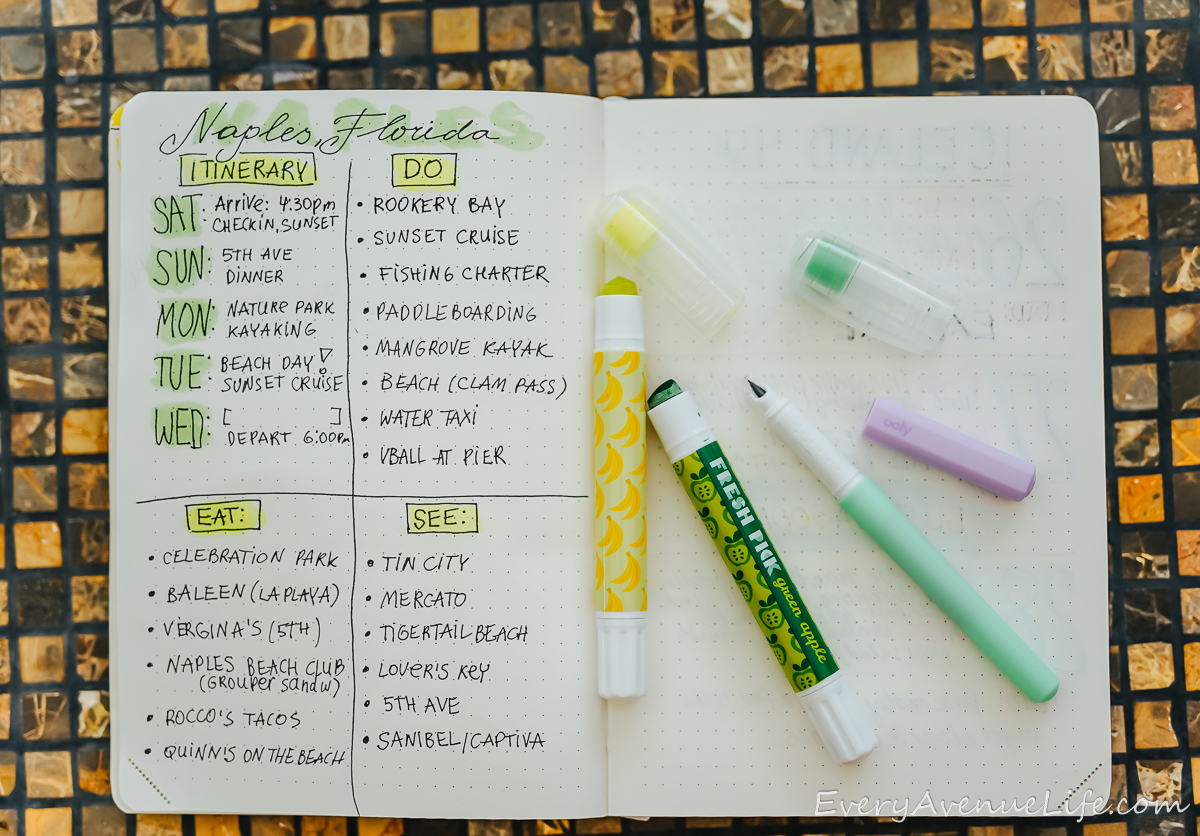 Naples, Florida
ITINERARY
SAT: Arrive: 4:30pm
CHECKIN, SUNSET
SUN: 5TH AVE
DINNER
MON: NATURE PARK
KAYAKING
TUE: BEACH DAY!
SUNSET CRUISE
WED: [ ]
DEPART 6:00pm
DO
• ROOKERY BAY
• SUNSET CRUISE
• FISHING CHARTER
• PADDLEBOARDING
• MANGROVE KAYAK
• BEACH (CLAM PASS)
• WATER TAXI
• VBALL AT PIER
EAT:
• CELEBRATION PARK
• BALEEN (LA PLAYA)
• VERGINA'S (5TH)
• NAPLES BEACH CLUB
(GROUPER SANDW)
• ROCCO'S TACOS
• QUINN'S ON THE BEACH
SEE:
• TIN CITY
• MERCATO
• TIGERTAIL BEACH
• LOVER'S KEY
• 5TH AVE
• SANIBEL/CAPTIVA
FRESH PICK green apple
ooly
EveryAvenueLife.com